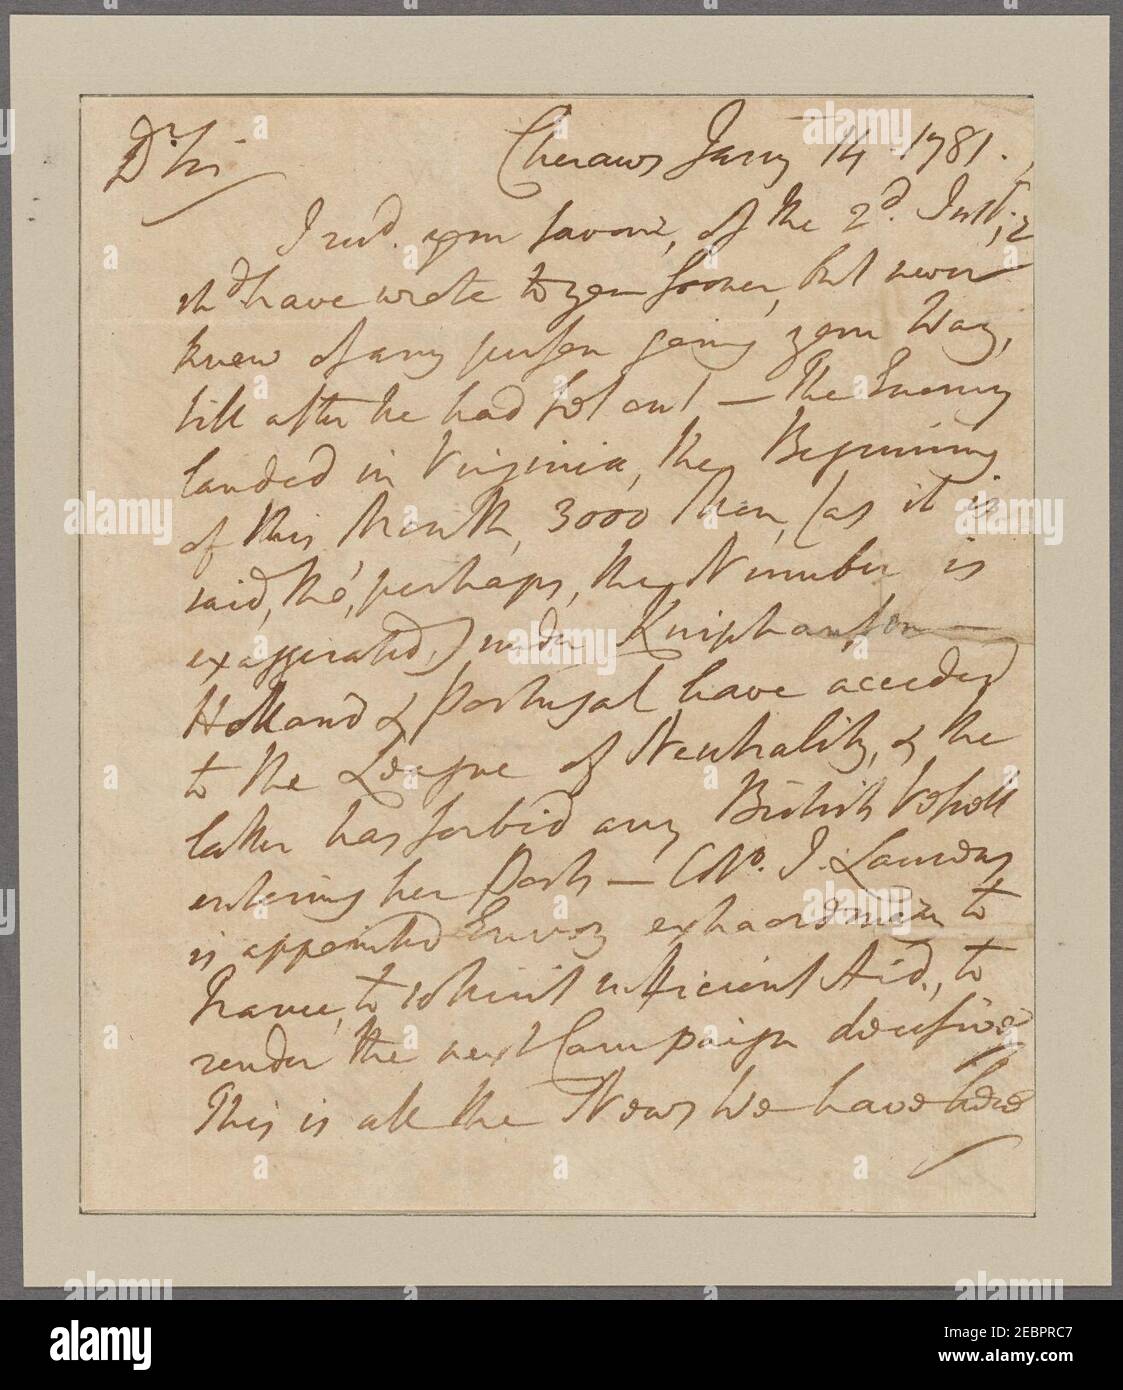 Dr. Sir
Cheraws Jany 14. 1781.
I recd. your favour, of the 2d. Inst, &
shd have wrote to you sooner, but never
knew of any person going your Way,
till after he had set out — The Enemy
landed in Virginia, the Beginning
of this Month, 3000 Men, (as it is
said, tho', perhaps, the Number is
exaggerated,) under Kniphausen —
Holland & Portugal have acceded
to the League of Neutrality, & the
latter has forbid any British Vessell
entering her Ports — Colo. J. Laurens
is appointed Envoy extraordinary to
France, to sollicit sufficient Aid, to
render the next Campaign decisive
This is all the News We have here
alamy
Image ID: 2EBPRC7
www.alamy.com